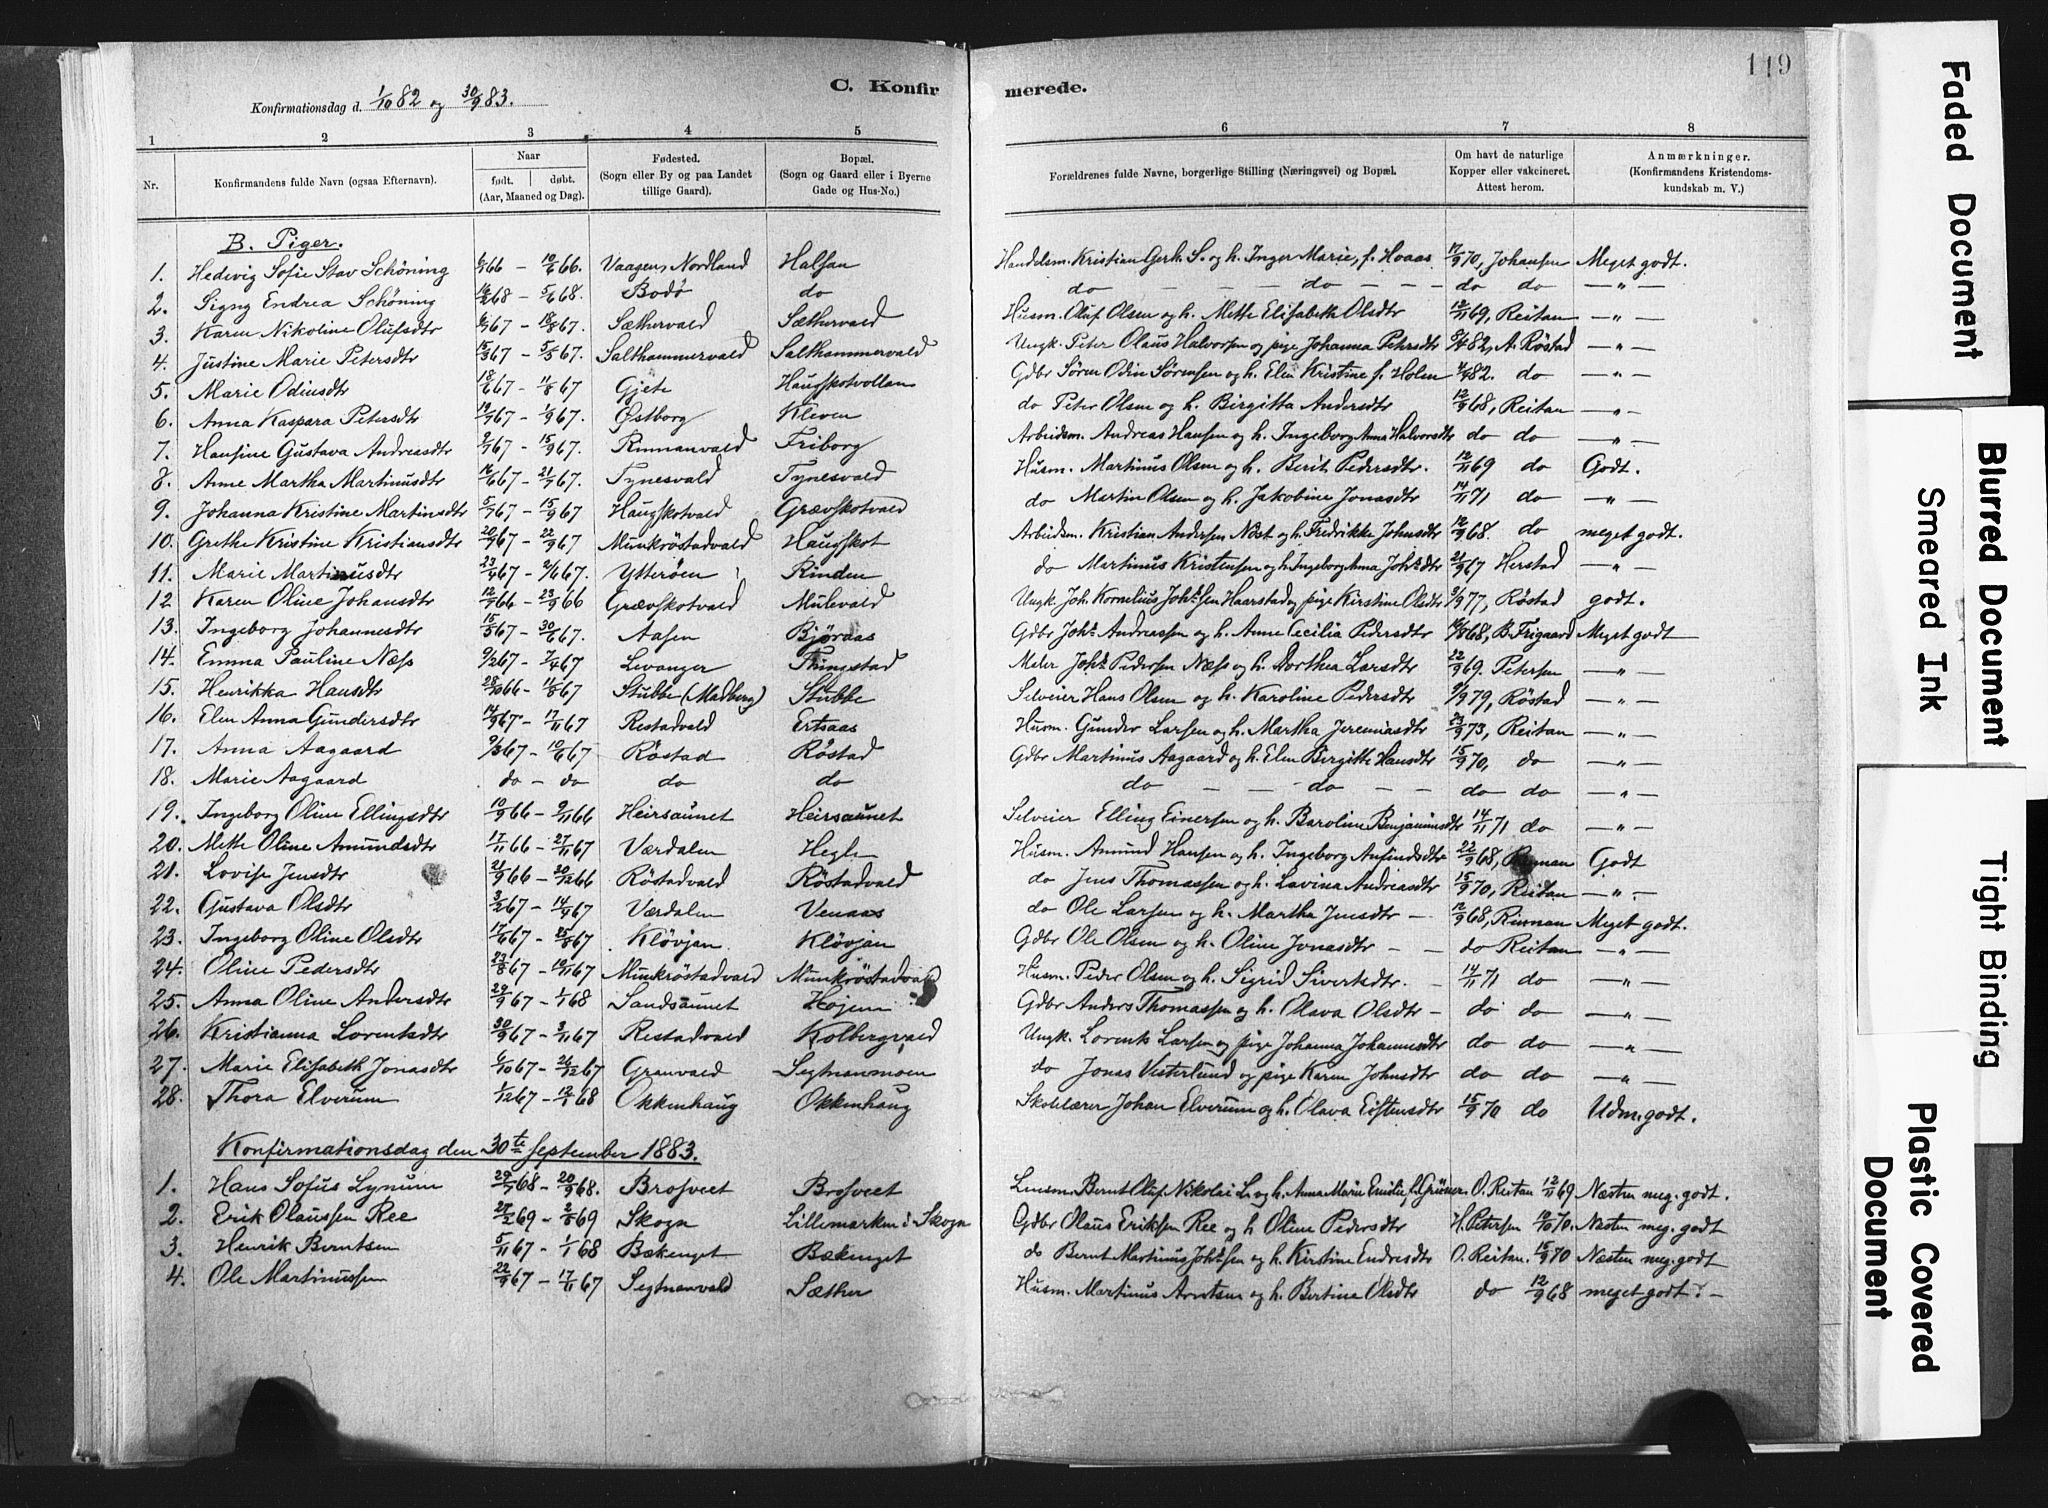 119
Konfirmationsdag d. 1/10 82 og 30/9 83.
C. Konfirmerede.
1 2 3 4 5 6 7 8
Nr. Konfirmandens fulde Navn (ogsaa Efternavn). Naar født. døbt. (Aar, Maaned og Dag). Fødested. (Sogn eller By og paa Landet tillige Gaard). Bopæl. (Sogn og Gaard eller i Byerne Gade og Hus-No.) Forældrenes fulde Navne, borgerlige Stilling (Næringsvei) og Bopæl. Om havt de naturlige Kopper eller vakcineret. Attest herom. Anmærkninger. (Konfirmandens Kristendomskundskab m. V.)
B. Piger.
1. Hedevig Sofie Stav Schöning 66 – 10/6 66. Vaagen, Nordland Halsan Handelsm. Kristian Gerh. S. og h. Inger Marie, f. Hoaas 17/9 70, Johansen Meget godt.
2. Signy Endrea Schöning 68 – 5/6 68. Bodö do do – – – do – – – do do – " –
3. Karen Nikoline Olufsdtr 67 – 18/8 67. Sæthervald Sæthervald Husm. Oluf Olsen og h. Mette Elisabeth Olsdtr 12/11 69, Reitan – " –
4. Justine Marie Petersdtr 15/3 67 – 5/5 67. Salthammervald Salthammervald Ungk. Peter Olaus Halvorsen og pige Johanna Petersdtr 82, A. Röstad – " –
5. Marie Odinsdtr 18/6 67 – 11/8 67 Gjete Haugskotvollan Gdbr Sören Odin Sörensen og h. Elen Kristine f. Holm 82. do – " –
6. Anna Kaspara Petersdtr 19/7 67 – 1/9 67. Østborg Kleven do Peter Olsen og h. Birgitta Andersdtr 12/9 68, Reitan – " –
7. Hansine Gustava Andreasdtr 67 – 15/9 67. Rinnanvald Friborg Arbeidsm. Andreas Hansen og h. Ingeborg Anna Halvorsdtr do do – " –
8. Anne Martha Martinusdtr 16/6 67 – 21/7 67. Tynesvald Tynesvald Husm. Martinus Olsen og h. Berit Pedersdtr. 12/11 69 do Godt.
9. Johanna Kristine Martinsdtr 5/7 67 – 15/9 67 Haugskotvald Grævskotvald do Martin Olsen og h. Jakobine Jonasdtr 14/11 71 do – " –
10. Grethe Kristine Kristiansdtr 67 – 22/9 67 Munkröstadvald Haugskot Arbeidsm. Kristian Andersen Næst og h. Fredrikke Johnsdtr 12/9 68. do meget godt.
11. Marie Martinusdtr 23/4 67 – 67. Ytteröen Rinden do Martinus Kristensen og h. Ingeborg Anna Johs.dtr 21/9 67 Herstad – " –
12. Karen Oline Johansdtr 12/9 66 – 23/9 66 Grævskotvald Mulevald Ungk. Joh. Kornelius Johs.sen Haarstad og pige Kirstine Olsdtr 77, Röstad godt.
13. Ingeborg Johannesdtr 15/5 67 – 30/6 67. Aasen Björaas Gdbr Johs. Andreassen og h. Anne Cecilia Pedersdtr 68, B. Frigaard Meget godt
14. Emma Pauline Næss 9/2 67 – 7/4 67 Levanger Tningstad Meler Johs. Pedersen Næss og h. Dorthea Larsdtr 22/9 69. Petersen – " –
15. Henrikka Hansdtr 28/10 66 – 11/8 67 Stubbe (Madberg) Stubbe Selveier Hans Olsen og h. Karoline Pedersdtr 9/9 79, Röstad – " –
16. Elen Anna Gundersdtr 14/9 67 – 17/11 67 Restadvald Ertsaas Husm. Gunder Larsen og h. Martha Jeremiasdtr 23/9 73, Reitan – " –
17. Anna Aagaard 9/3 67 – 10/6 67 Röstad Röstad Gdbr Martinus Aagaard og h. Elen Birgitte Hansdtr 15/9 70, do – " –
18. Marie Aagaard do – do do do do – – do – – do do – " –
19. Ingeborg Oline Ellingsdtr 10/9 66 – 9/11 66 Heirsaunet Heirsaunet Selveier Elling Einersen og h. Baroline Benjaminsdtr 14/11 71 do – " –
20. Mette Oline Amundsdtr 17/11 66 – 27/11 67 Værdalen Hegle Husm. Amund Hansen og h. Ingeborg Anfindsdtr 22/9 68, Rinnan Godt
21. Lovise Jensdtr 21/9 66 – 30/12 66 Röstadvald Röstadvald do Jens Thomassen og h. Lavina Andreasdtr 15/9 70, Reitan – " –
22. Gustava Olsdtr 3/2 67 – 14/4 67 Værdalen Venaas do Ole Larsen og h. Martha Jensdtr – 12/9 68, Rinnan Meget godt.
23. Ingeborg Oline Olsdtr 17/6 67 – 25/8 67 Klövjan Klövjan Gdbr Ole Olsen og h. Oline Jonasdtr – – do Reitan – " –
24. Oline Pedersdtr 23/8 67 – 10/11 67 Munkröstadvald Munkröstadvald Husm. Peder Olsen og h. Sigrid Sivertsdtr. – 14/11 71 do – " –
25. Anna Oline Andersdtr 29/9 67 – 1/1 68 Sandsaunet Hojem Gdbr Anders Thomassen og h. Olava Olsdtr – do do – " –
26. Kristianna Lorentsdtr 30/9 67 – 3/11 67 Restadvald Kolbergvald Ungk. Lorents Larsen og pige Johanna Johannesdtr do do – " –
27. Marie Elisabeth Jonasdtr 6/10 67 – 26/12 67 Granvald Segtnanmoen do Jonas Vesterlund og pige Karen Johnsdtr do do – " –
28. Thora Elverum 1/12 67 – 12/1 68 Okkenhaug Okkenhaug Skolelærer Johan Elverum og h. Olava Eistensdtr 15/9 70 do Udm. godt.
Konfirmationsdag den 30te September 1883.
1. Hans Sofus Lynum 29/7 68 – 20/9 68. Brosveet Brosveet Lensm. Bernt Oluf Nikolai L. og h. Anna Marie Emilie f. Grüner O. Reitan 12/11 69 Næsten meg. godt.
2. Erik Olaussen Ree 27/2 69 – 2/5 69 Skogn Lillemarken i Skogn Gdbr Olaus Eriksen Ree og h Oline Pedersdtr H. Petersen 10/10 70. Næsten meg. godt
3. Henrik Berntsen 5/11 67 – 1/1 68 Bækenget Bækenget do Bernt Martinus Johs.sen og h. Kirstine Endresdtr O. Reitan. 15/9 70 Næsten meg. godt
4. Ole Martinussen 22/9 67 – 17/11 67 Segtnanvald Sæther Husm. Martinus Arntsen og h. Bertine Olsdtr do 12/9 68 meget godt. –
Faded Document
Blurred Document
Smeared Ink
Tight Binding
Plastic Covered
Document